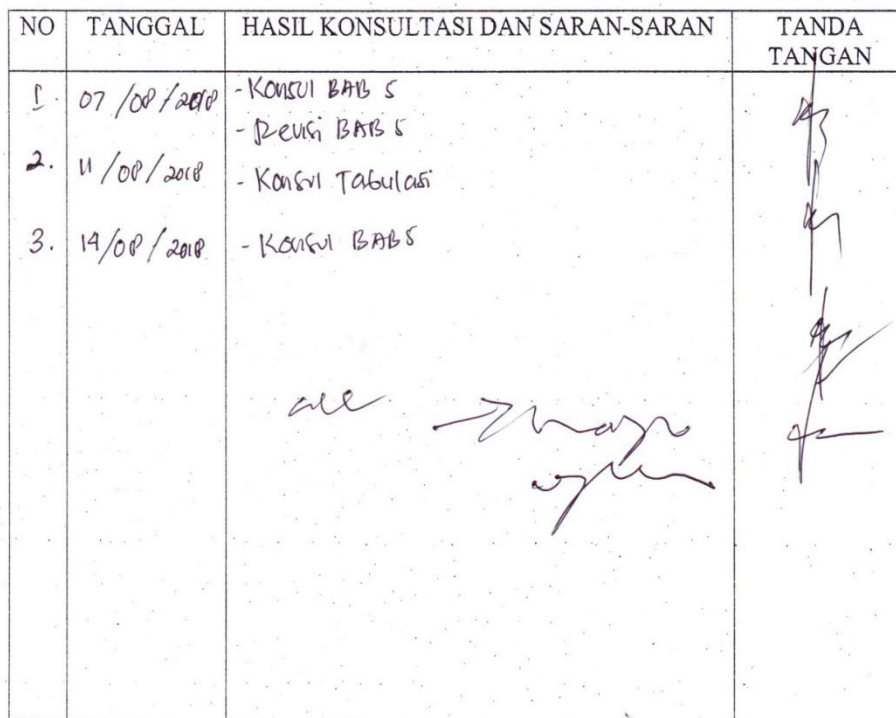 NO TANGGAL HASIL KONSULTASI DAN SARAN-SARAN TANDA TANGAN
1. 07/08/2018 - Konsul BAB 5
- Revisi BAB 5
2. 11/08/2018 - Konsul Tabulasi
3. 14/08/2018 - Konsul BAB 5
acc → maju